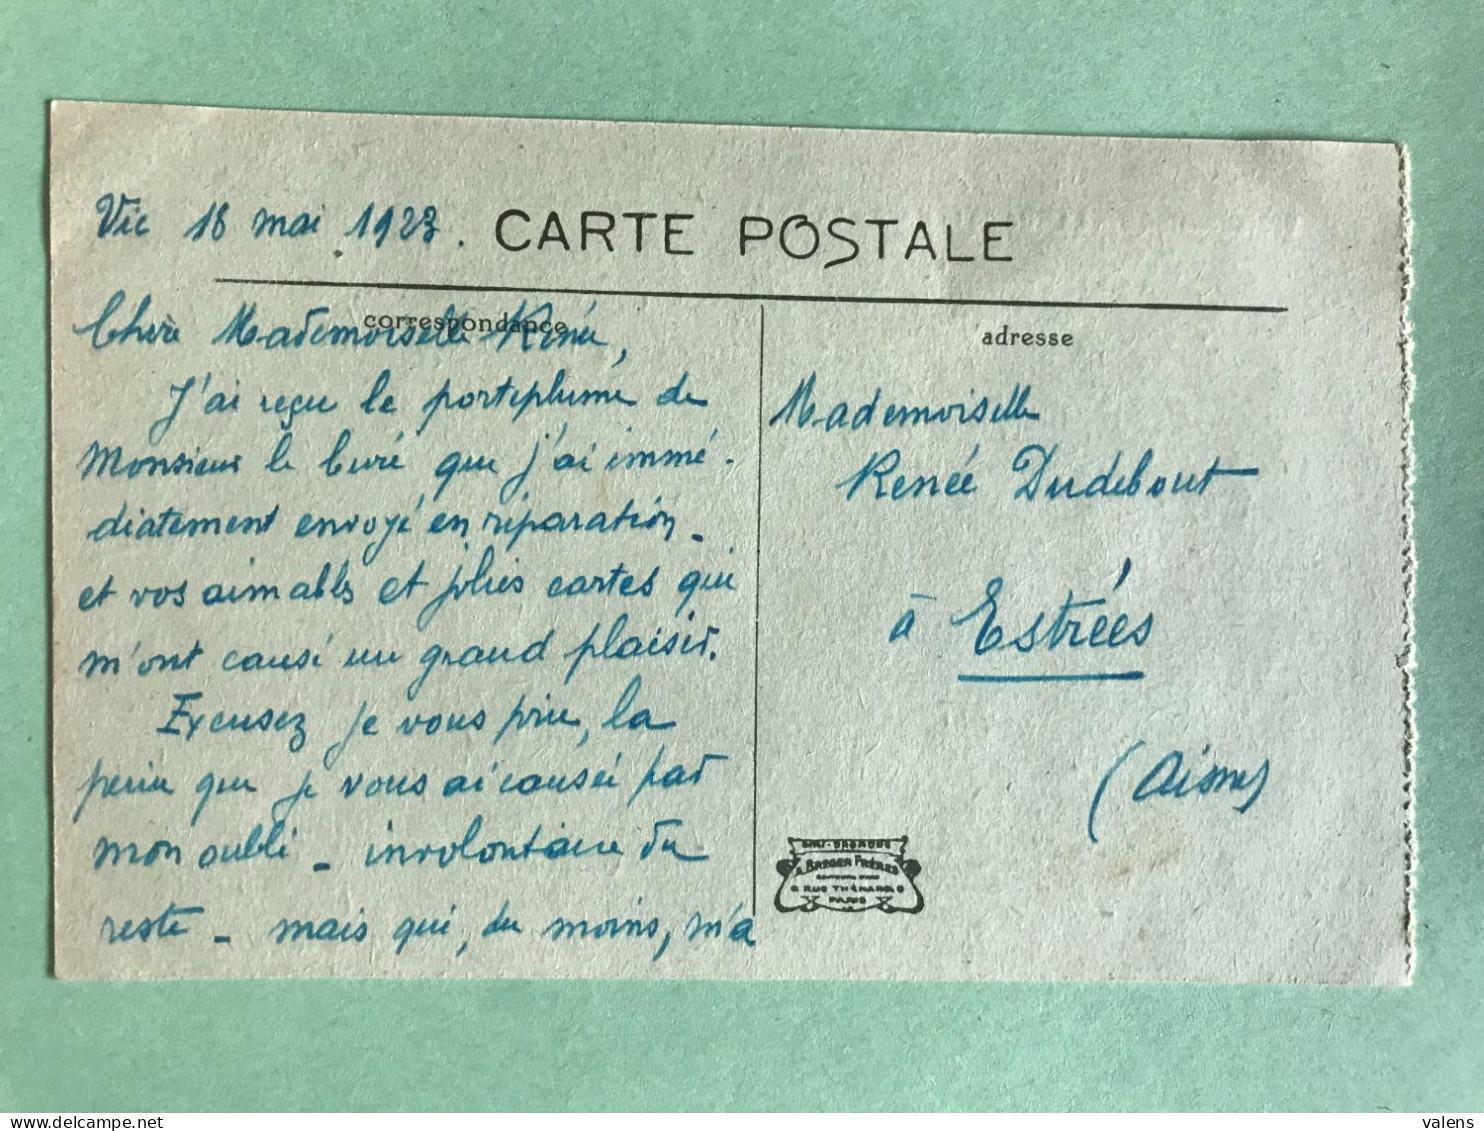 Vic 18 mai 1923.
CARTE POSTALE
correspondance
Chère Mademoiselle Renée,
J'ai reçu le porteplume de
Monsieur le Curé que j'ai immé-
diatement envoyé en réparation -
et vos aimables et jolies cartes qui
m'ont causé un grand plaisir.
Excusez je vous prie, la
peine que je vous ai causée par
mon oubli - involontaire du
reste - mais qui, du moins, m'a
adresse
Mademoiselle
Renée Dudebout
à Estrées
(Aisne)
A. BREGER FRÈRES
9 RUE THÉNARD 9
PARIS
valens